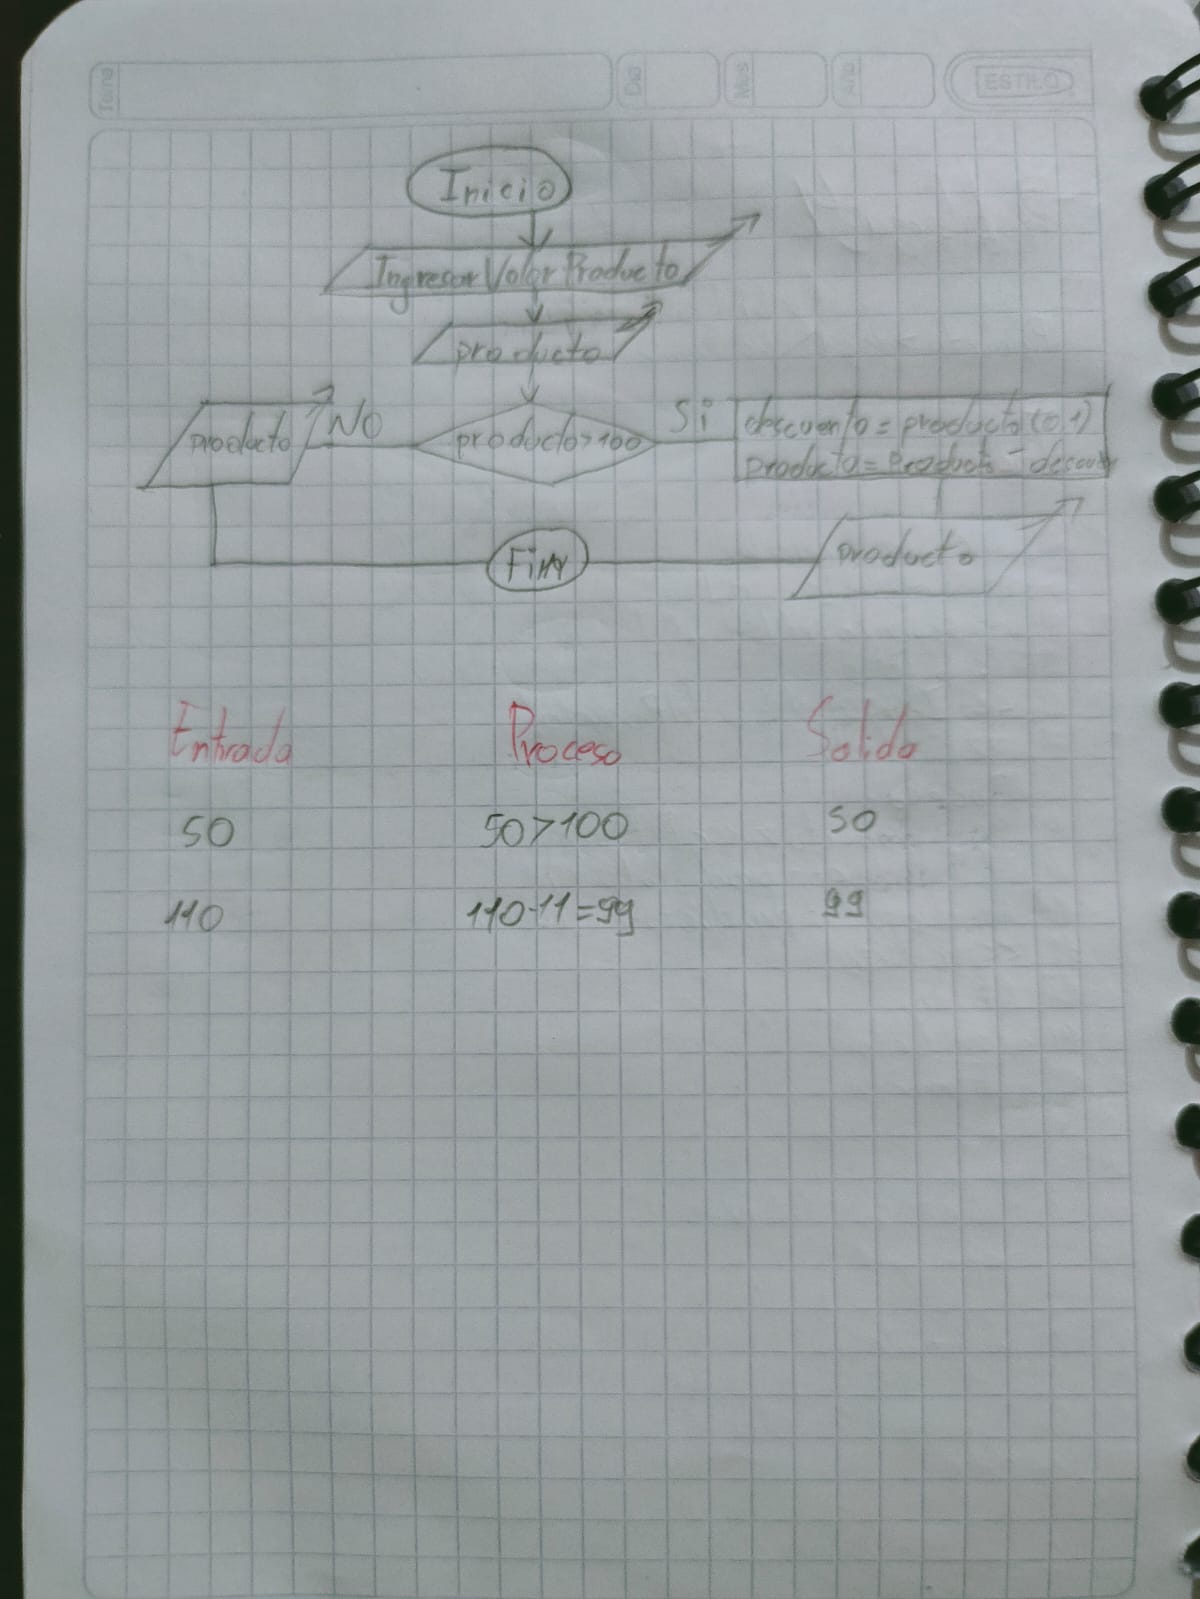 Tema Dia Mes Año ESTILO
Inicio
Ingresar Valor Producto
producto
producto NO producto>100 Si descuento = producto (0.1)
producto = Producto - descuen
Fin producto
Entrada Proceso Salida
50 50>100 50
110 110-11=99 99